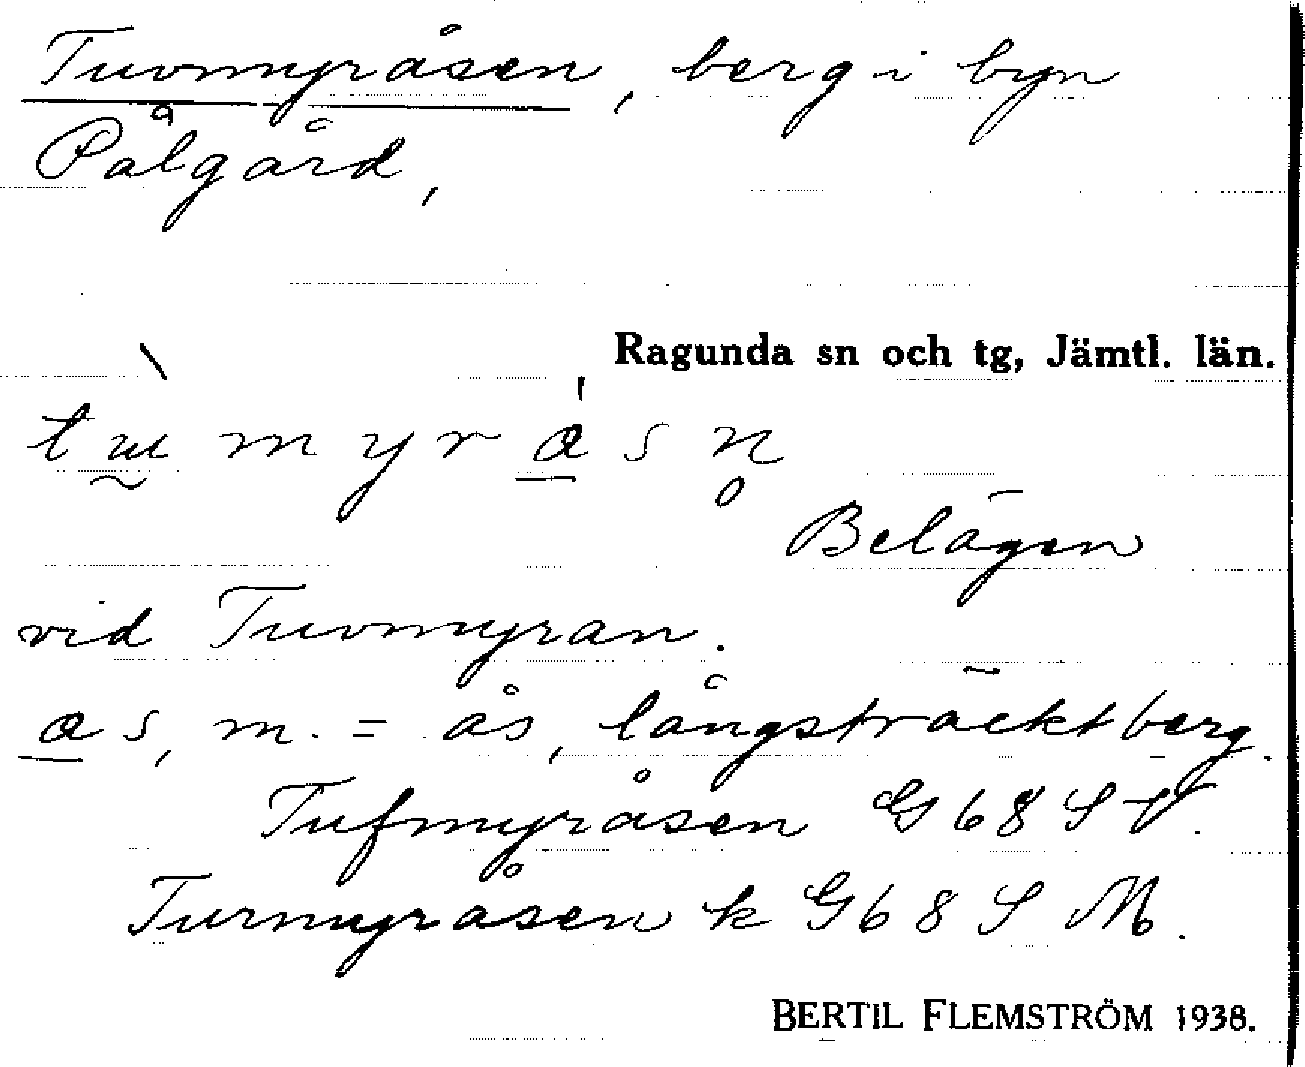 Tuvmyråsen, berg i byn
Pålgård,
Ragunda sn och tg, Jämtl. län.
Belägen
vid Tuvmyran.
as, m. = ås, långsträckt berg.
Tufmyråsen G 68 S V.
Turmyråsen k G 68 S M.
BERTIL FLEMSTRÖM 1938.